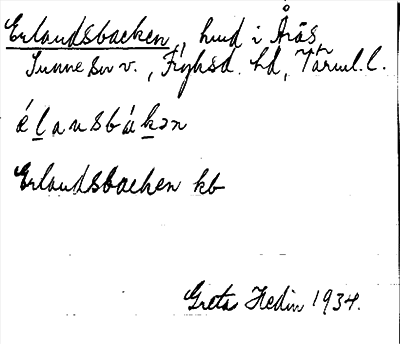 Erlandsbacken, hmd i Årås
Sunne sn v., Fryksd. hd, Värml. l.
élansbákən
Erlandsbacken kb
Greta Hedin 1934.